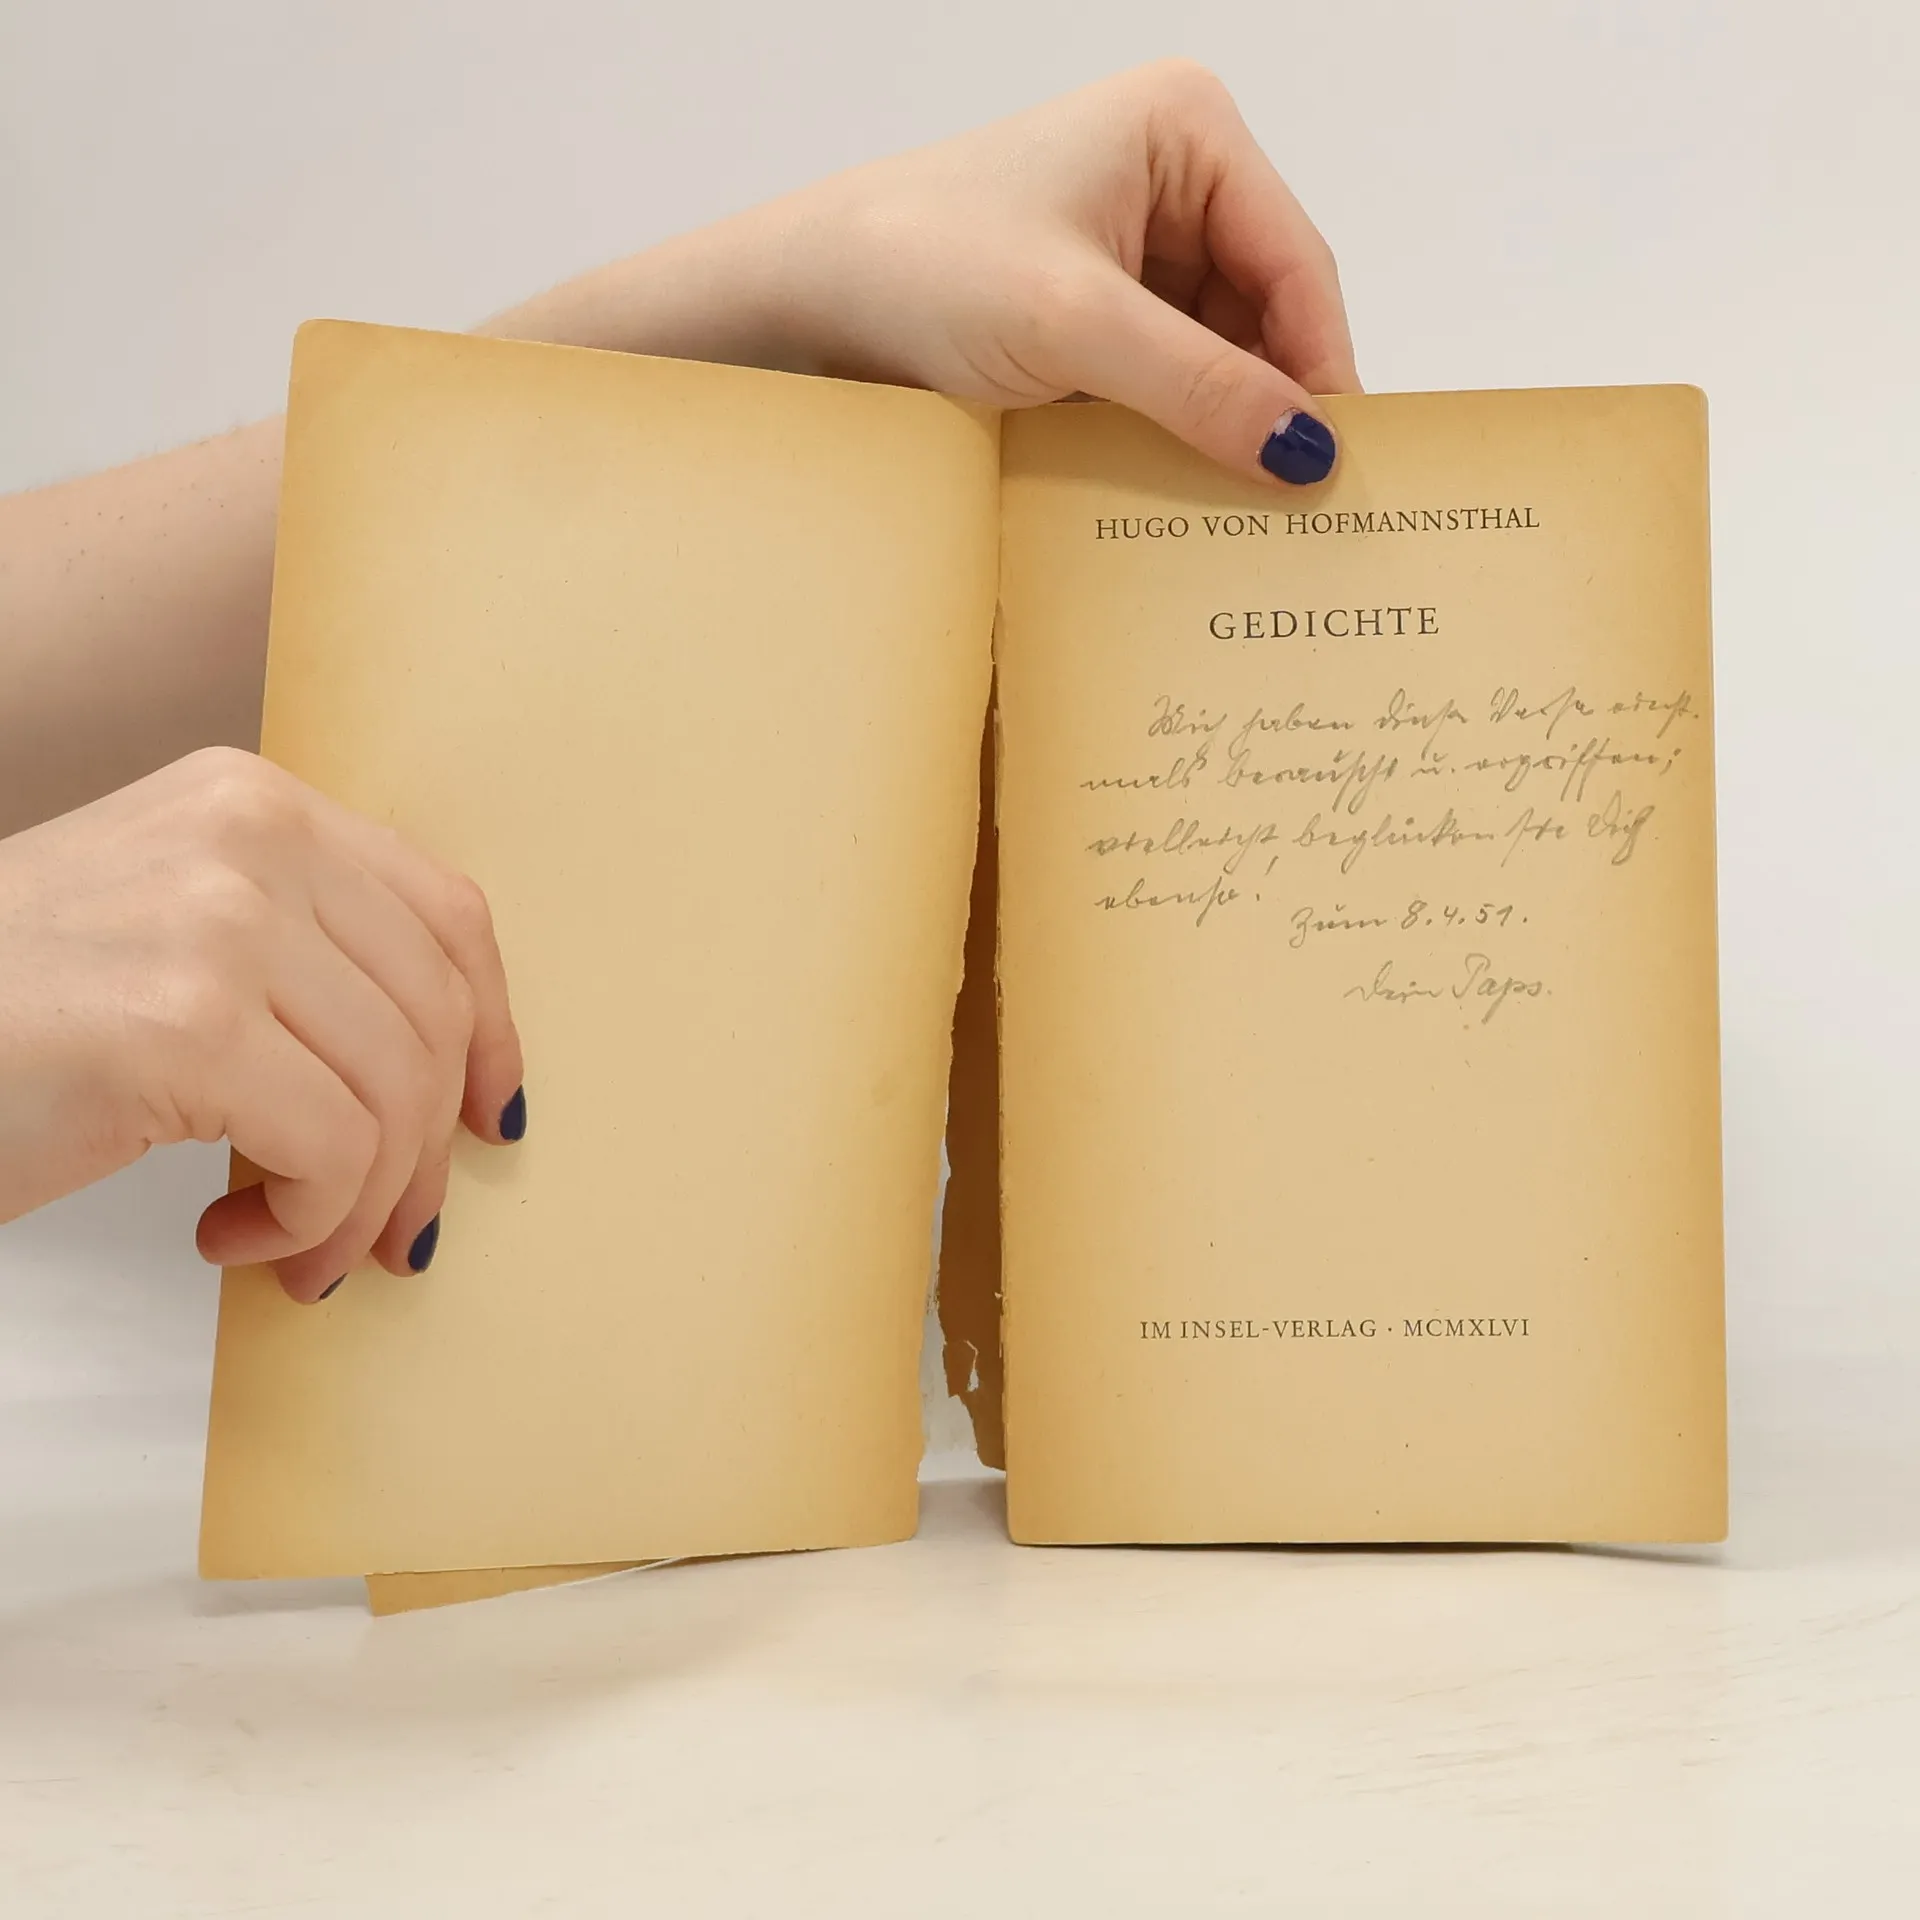 HUGO VON HOFMANNSTHAL
GEDICHTE
Mich haben diese Verse einst-
mals berauscht u. ergriffen;
vielleicht beglücken sie Dich
ebenso!
Zum 8.4.51.
Dein Paps.
IM INSEL-VERLAG · MCMXLVI